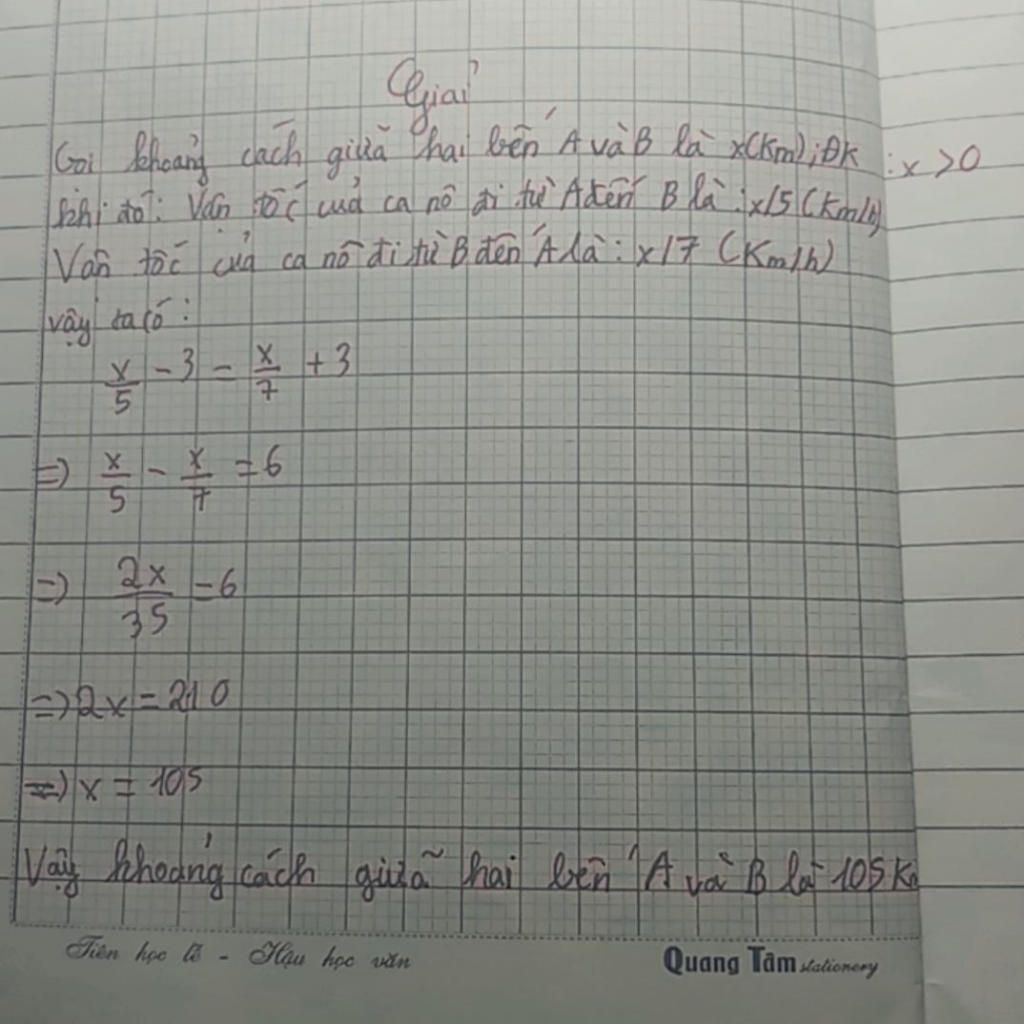 Giải
Gọi khoảng cách giữa hai bến A và B là x(Km); ĐK : x > 0
khi đó: Vận tốc cuả ca nô đi từ A đến B là : x/5 (Km/h)
Vận tốc cuả ca nô đi từ B đến A là : x/7 (Km/h)
vậy ta có :
x/5 - 3 = x/7 + 3
=> x/5 - x/7 = 6
=> 2x/35 = 6
=> 2x = 210
=> x = 105
Vậy khoảng cách giữa hai bến A và B là 105 Km
Tiên học lễ - Hậu học văn
Quang Tâm stationery